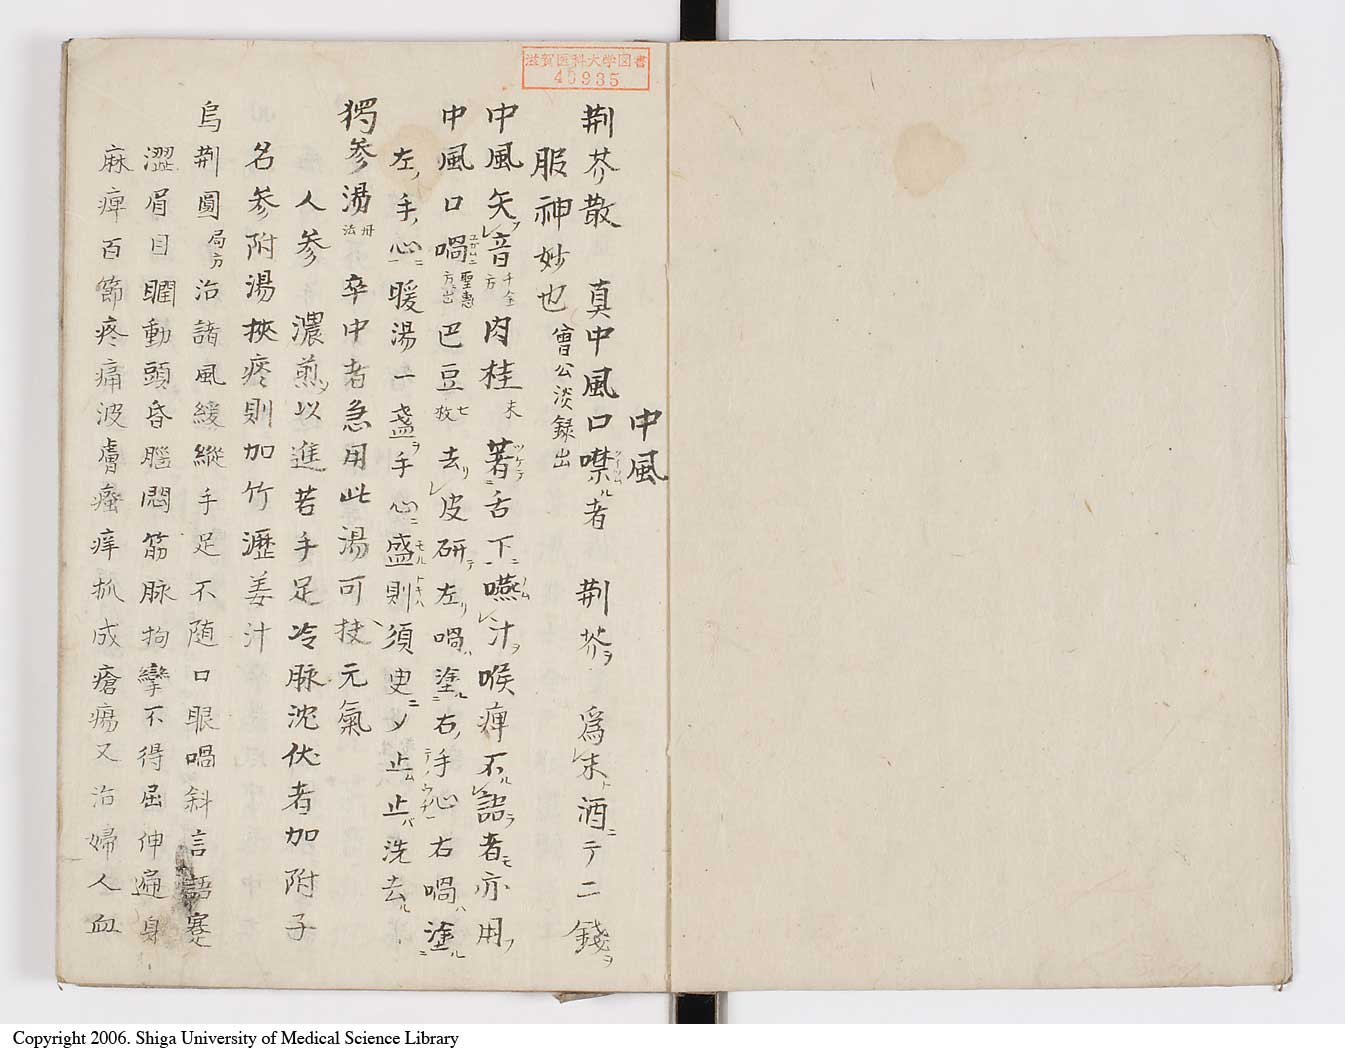 滋賀医科大学図書
45935
中風
荊芥散 真中風口噤ル者 荊芥ヲ 爲末ト酒ニテ二錢ヲ
服神妙也 曾公淡録出
中風矢音ヲ 千金方 肉桂 末 著ツケテ舌下ニ嚥ノム汁ヲ喉痺不ル語ラ者モ亦用フ
中風口喎 聖惠方ニ出 巴豆 七枚 去リ皮研テ左リ喎ハ塗ル右ノ手心右喎ハ塗ル
左ノ手ノ心ニ暖湯一盞ヲ手心ニ盛モル則トキハ須臾ニ止ム止バ洗去ル
獨參湯 丹法 卒中者急用此湯可扶元氣
人参 濃煎シ以進若手足冷脉沈伏者加附子
名参附湯挾痰則加竹瀝姜汁
烏荊圓 局方 治諸風緩縱手足不随口眼喎斜言語蹇
澀眉目瞤動頭昏腦悶筋脉拘攣不得屈伸遍身
麻痺百節疼痛皮膚瘙痒抓成瘡瘍又治婦人血
Copyright 2006. Shiga University of Medical Science Library